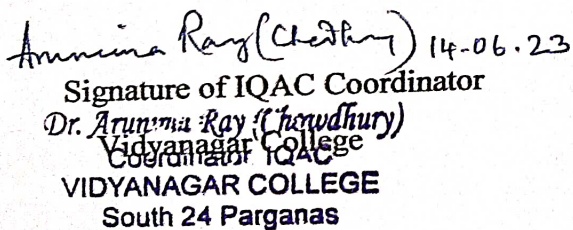 Arunima Ray (Chowdhury) 14-06.23
Signature of IQAC Coordinator
Dr. Arunima Ray (Chowdhury)
Vidyanagar College
Coordinator IQAC
VIDYANAGAR COLLEGE
South 24 Parganas